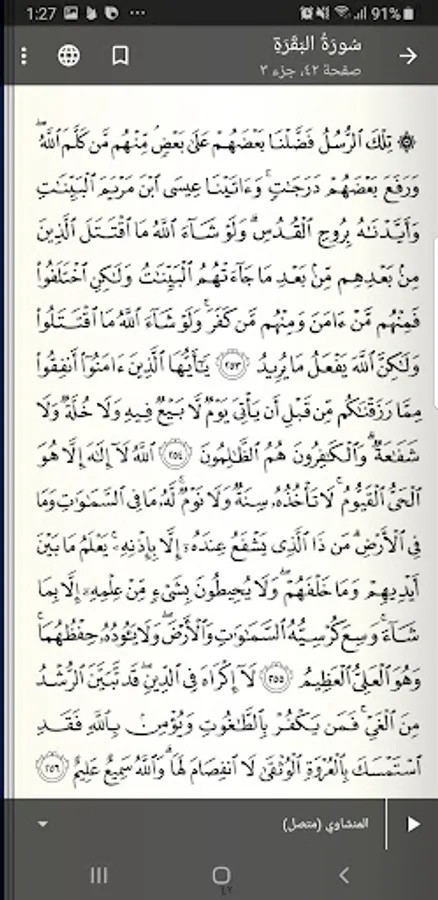 1:27 ... 91%
سُورَةُ البَقَرَةِ
صفحة ٤٢، جزء ٣
۞ تِلْكَ ٱلرُّسُلُ فَضَّلْنَا بَعْضَهُمْ عَلَىٰ بَعْضٍۘ مِّنْهُم مَّن كَلَّمَ ٱللَّهُۖ
وَرَفَعَ بَعْضَهُمْ دَرَجَٰتٍۚ وَءَاتَيْنَا عِيسَى ٱبْنَ مَرْيَمَ ٱلْبَيِّنَٰتِ
وَأَيَّدْنَٰهُ بِرُوحِ ٱلْقُدُسِۗ وَلَوْ شَآءَ ٱللَّهُ مَا ٱقْتَتَلَ ٱلَّذِينَ
مِنۢ بَعْدِهِم مِّنۢ بَعْدِ مَا جَآءَتْهُمُ ٱلْبَيِّنَٰتُ وَلَٰكِنِ ٱخْتَلَفُوا۟
فَمِنْهُم مَّنْ ءَامَنَ وَمِنْهُم مَّن كَفَرَۚ وَلَوْ شَآءَ ٱللَّهُ مَا ٱقْتَتَلُوا۟
وَلَٰكِنَّ ٱللَّهَ يَفْعَلُ مَا يُرِيدُ ٢٥٣ يَٰٓأَيُّهَا ٱلَّذِينَ ءَامَنُوٓا۟ أَنفِقُوا۟
مِمَّا رَزَقْنَٰكُم مِّن قَبْلِ أَن يَأْتِىَ يَوْمٌ لَّا بَيْعٌ فِيهِ وَلَا خُلَّةٌ وَلَا
شَفَٰعَةٌۗ وَٱلْكَٰفِرُونَ هُمُ ٱلظَّٰلِمُونَ ٢٥٤ ٱللَّهُ لَآ إِلَٰهَ إِلَّا هُوَ
ٱلْحَىُّ ٱلْقَيُّومُۚ لَا تَأْخُذُهُۥ سِنَةٌ وَلَا نَوْمٌۚ لَّهُۥ مَا فِى ٱلسَّمَٰوَٰتِ وَمَا
فِى ٱلْأَرْضِۗ مَن ذَا ٱلَّذِى يَشْفَعُ عِندَهُۥٓ إِلَّا بِإِذْنِهِۦۚ يَعْلَمُ مَا بَيْنَ
أَيْدِيهِمْ وَمَا خَلْفَهُمْۖ وَلَا يُحِيطُونَ بِشَىْءٍ مِّنْ عِلْمِهِۦٓ إِلَّا بِمَا
شَآءَۚ وَسِعَ كُرْسِيُّهُ ٱلسَّمَٰوَٰتِ وَٱلْأَرْضَۖ وَلَا يَـُٔودُهُۥ حِفْظُهُمَاۚ
وَهُوَ ٱلْعَلِىُّ ٱلْعَظِيمُ ٢٥٥ لَآ إِكْرَاهَ فِى ٱلدِّينِۖ قَد تَّبَيَّنَ ٱلرُّشْدُ
مِنَ ٱلْغَىِّۚ فَمَن يَكْفُرْ بِٱلطَّٰغُوتِ وَيُؤْمِنۢ بِٱللَّهِ فَقَدِ
ٱسْتَمْسَكَ بِٱلْعُرْوَةِ ٱلْوُثْقَىٰ لَا ٱنفِصَامَ لَهَاۗ وَٱللَّهُ سَمِيعٌ عَلِيمٌ ٢٥٦
المنشاوي (متصل)
٤٢